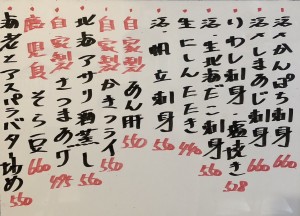 活〆かんぱち刺身 660
活〆しまあじ刺身 660
いわし刺身・塩焼き 528
活・生北海だこ刺身 550
生にしんたたき 440
活・帆立刺身 550
自家製 あん肝 550
自家製 かきフライ 550
北海アサリ酒蒸し 550
自家製さつまあげ 495
鹿児島 そら豆 660
海老とアスパラバター炒め 550